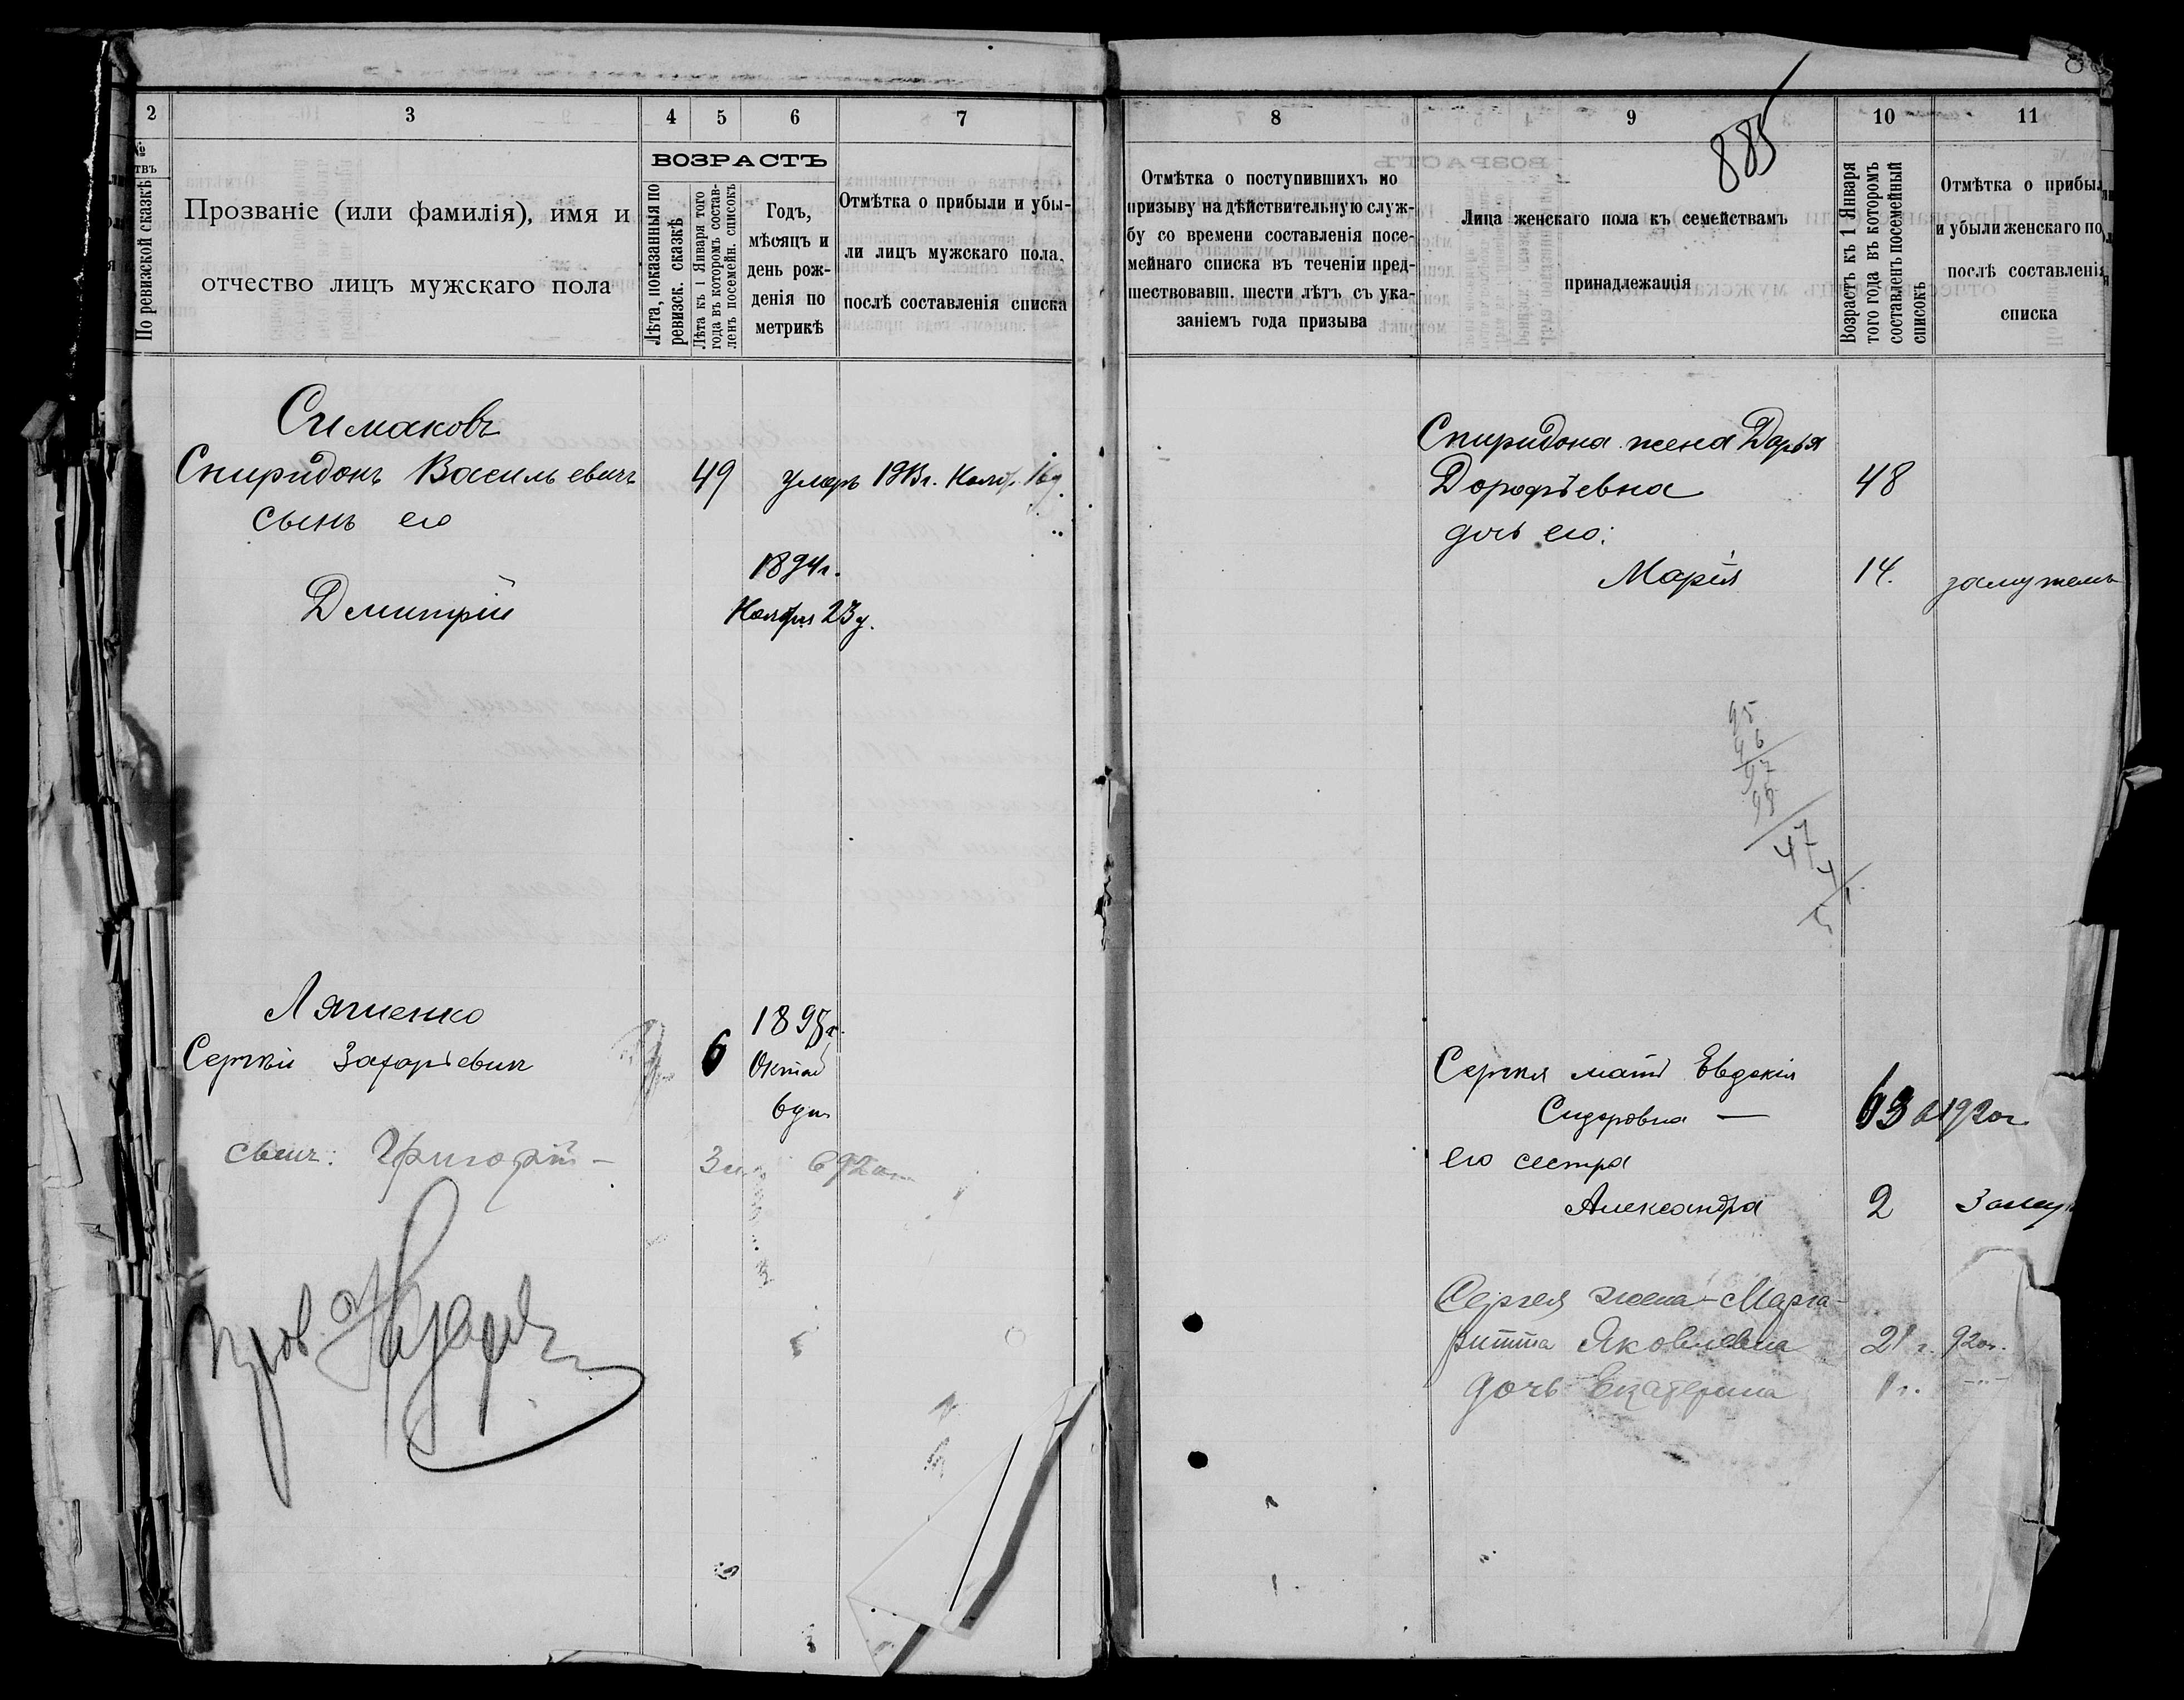 2
3
4
5
6
7
ВОЗРАСТЪ
№
По ревизской сказкѣ
Прозваніе (или фамилія), имя и
отчество лицъ мужскаго пола
Лѣта, показанныя по
ревизск. сказкѣ
Лѣта къ 1 Января того
года въ которомъ состав-
ленъ посемейн. списокъ
Годъ,
мѣсяцъ и
день рож-
денія по
метрикѣ
Отмѣтка о прибыли и убы-
ли лицъ мужскаго пола,
послѣ составленія списка
Симаковъ
Спиридонъ Васильевичъ 49 умеръ 1913г. Нояб. 16д.
сынъ его
1894г.
Дмитрій Ноября 23д.
1895г.
Сергѣй Захарьевичъ 6 Октяб
6 дня
сынъ: Григорій – 3
8
9
10
11
885
Отмѣтка о поступившихъ по
призыву на дѣйствительную служ-
бу со времени составленія посе-
мейнаго списка въ теченіи пред-
шествовавш. шести лѣтъ съ ука-
заніемъ года призыва
Лица женскаго пола къ семействамъ
принадлежащія
Возрастъ къ 1 Января
того года въ которомъ
составленъ посемейный
списокъ
Отмѣтка о прибыл
и убыли женскаго по
послѣ составленія
списка
Спиридона жена Дарья
Дорофѣевна 48
дочь его:
Марія 14. замужемъ
95
96
97
98
47
Сергѣя мать Евдокія
Сидоровна — 63 1920г
его сестра
Александра 2 Заму
Сергея жена – Марга-
ритта Яковлевна 21 г. 920г.
дочь Екатерина 1 г.